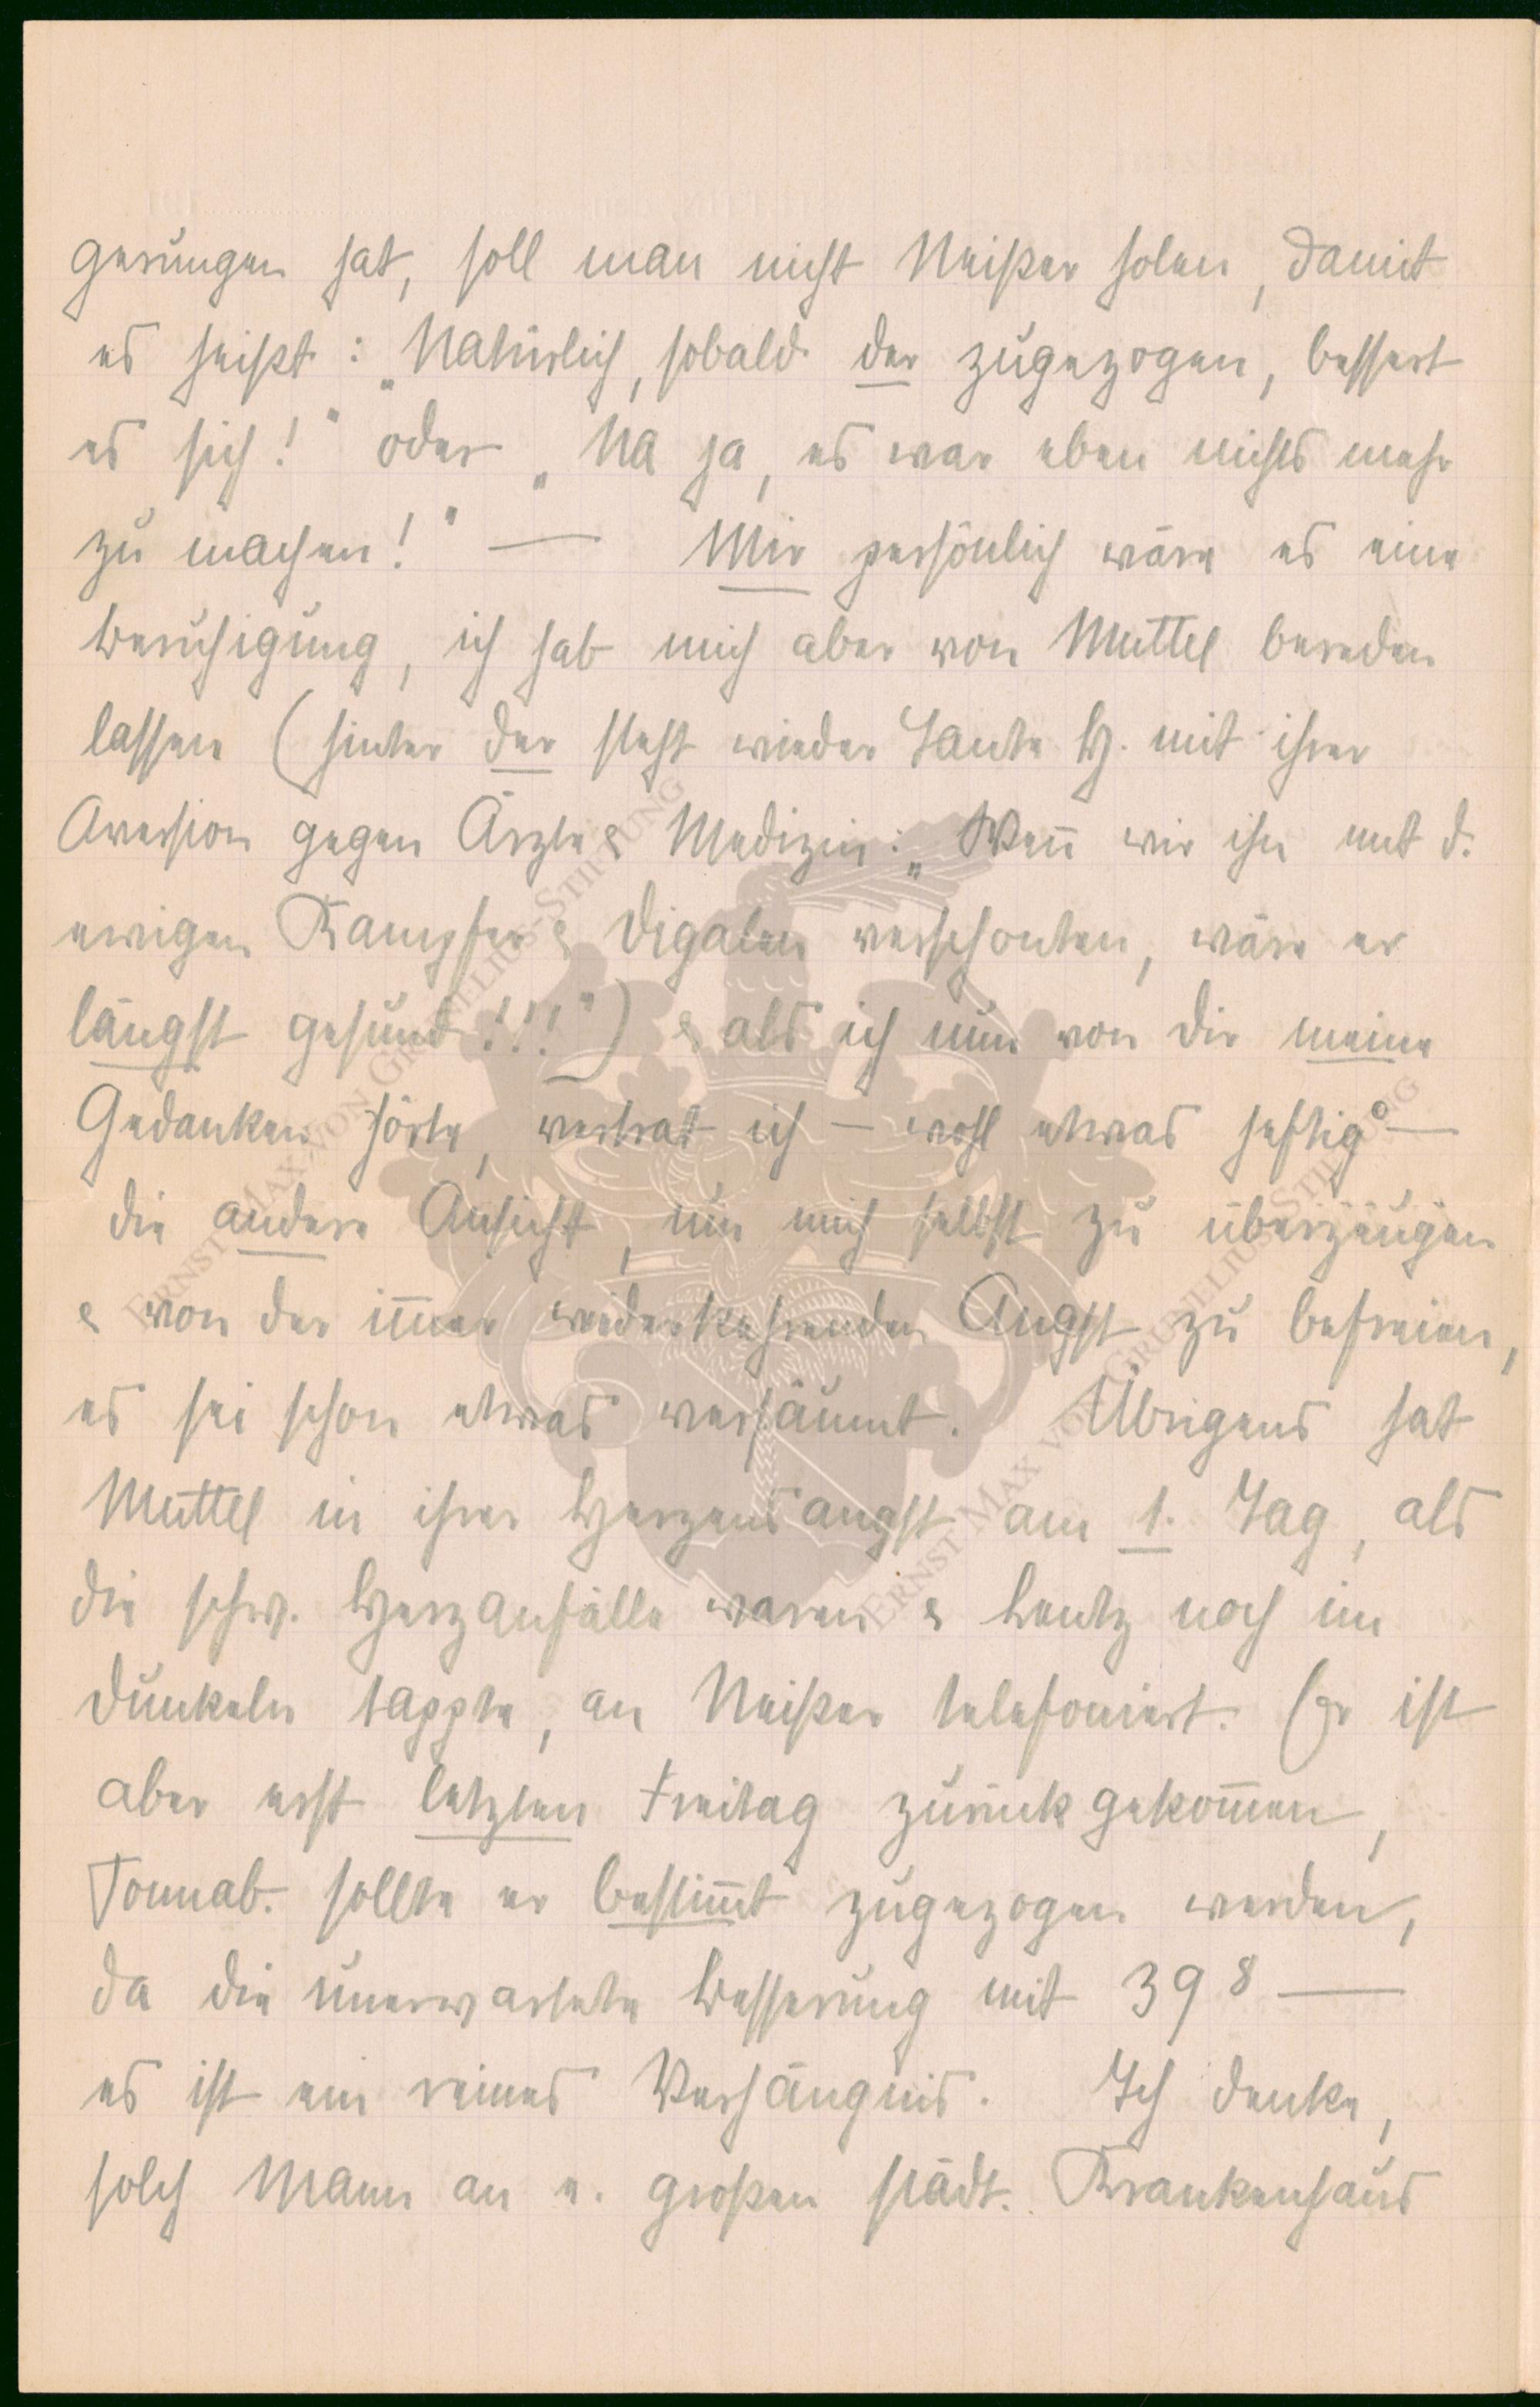 gerungen hat, soll man nicht Neißer holen, damit
es heißt: „Natürlich, sobald der zugezogen, bessert
es sich!" oder „Na ja, es war eben nichts mehr
zu machen!" — Mir persönlich wäre es eine
Beruhigung, ich hab mich aber von Muttel bereden
lassen (hinter der steht wieder Tante H. mit ihrer
Aversion gegen Ärzte & Medizin: „Wen̄ wir ihn mit d.
ewigen Kampfer & Digalen verschonten, wäre er
längst gesund!!!") & als ich nun von dir meine
Gedanken hörte, vertrat ich — wohl etwas heftig —
die andere Ansicht, um mich selbst zu überzeugen
& von der im̄er wiederkehrenden Angst zu befreien,
es sei schon etwas versäumt. Übrigens hat
Muttel in ihrer Herzensangst am 1. Tag, als
die schw. Herzanfälle waren & Bentz noch im
Dunkeln tappte, an Neißer telefoniert. Er ist
aber erst letzten Freitag zurückgekom̄en,
Sonnab. sollte er bestim̄t zugezogen werden,
da die unerwartete Besserung mit 39 8 —
es ist ein reines Verhängnis. Ich denke,
solch Mann an e. großen städt. Krankenhaus
ERNST MAX VON GRUNELIUS-STIFTUNG
ERNST MAX VON GRUNELIUS-STIFTUNG